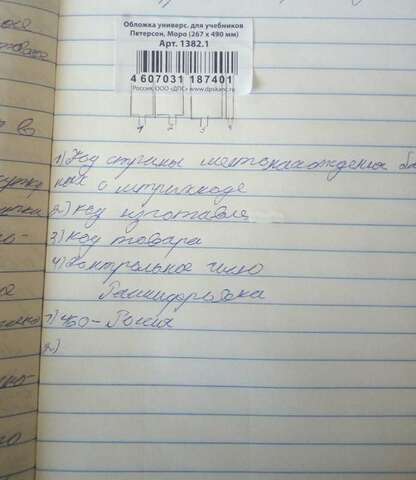 Обложка универс. для учебников
Петерсон, Моро (267 х 490 мм)
Арт. 1382.1
4 607031 187401
Россия, ООО «ДПС» www.dpskanc.ru
1 2 3 4
1) Код страны местонахождения
ных о штрихкоде
2) код изготавле
3) код товара
4) Контрольное число
Расшифровка
1) 460 - Россия
2)